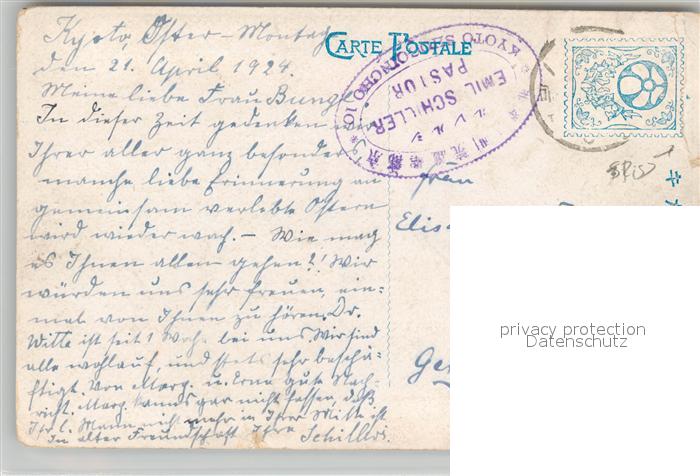 CARTE POSTALE
KYOTO
EMIL SCHILLER
PASTOR
Kyoto, Oster-Montag
den 21. April 1924.
Meine liebe Frau Bunge!
In dieser Zeit gedenken wir
Ihrer aller ganz besonders
manche liebe Erinnerung an
gemeinsam verlebte Ostern
wird wieder wach. – Wie mag
es Ihnen allen gehen?! Wir
würden uns sehr freuen, ein-
mal von Ihnen zu hören. Dr.
Witte ist seit 1 Woche bei uns. Wir sind
alle wohlauf, und stets sehr beschä-
ftigt. Von Marg. u. Erna gute Nach-
richt. Marg. kann's gar nicht fassen, daß
Ihr l. Mann nicht mehr in Ihrer Mitte ist
In alter Freundschaft Ihre Schillers.
Frau
Elis
Ge
privacy protection
Datenschutz